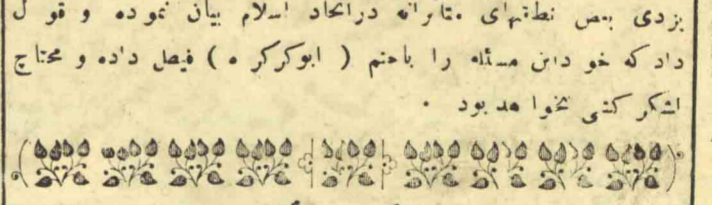 یزدی بعض نطقهای متأثرانه دراتحاد اسلام بیان نموده و قول
داد که خو داین مسئله را باحتم ( ابوکرکره ) فیصل داده و محتاج
لشکر کشی نخوا هد بود ۰